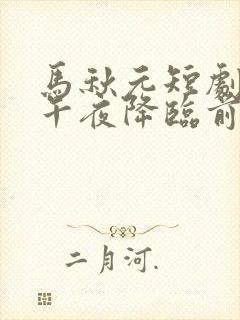 馬秋元短劇
午夜降臨前
二月河.